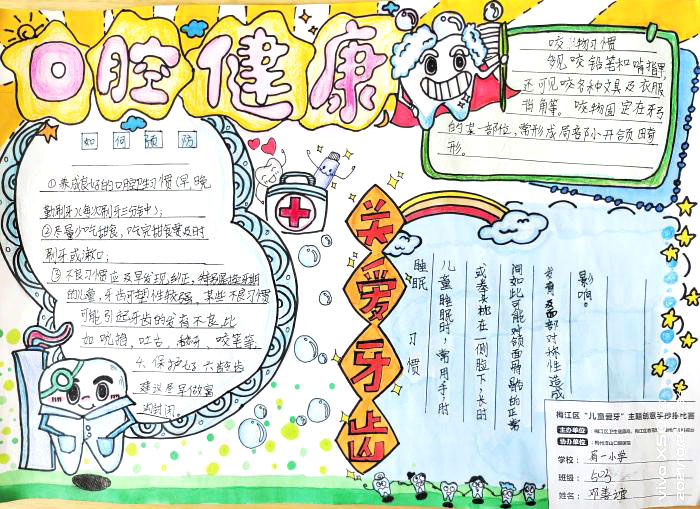 口腔健康
咬物习惯
多见咬铅笔和啃指甲,
还可见咬各种文具及衣服
指角等。咬物固定在牙弓
的某一部位,常形成局部小开颌畸
形。
如何预防
①养成良好的口腔卫生习惯(早、晚
勤刷牙)(每次刷牙三分钟);
②尽量少吃甜食,吃完甜食要及时
刷牙或漱口;
③不良习惯应及早发现,纠正,
的儿童,牙齿可塑性较强,某些不良习惯
可能引起牙齿的发育不良,比
如吮指,吐舌,咬笔等,
4、保护七六龄齿
建议尽早做窝
沟封闭。
关爱牙齿
睡眠习惯
儿童睡眠时,常用手、肘
或拳头枕在一侧脸下,长时
间如此可能对颌面骨骼的正常
发育及面部对称性造成
影响。
梅江区“儿童爱牙”主题创意手抄报比赛
主办单位:
协办单位:
学校:
班级:503
姓名:邓
vivo X5